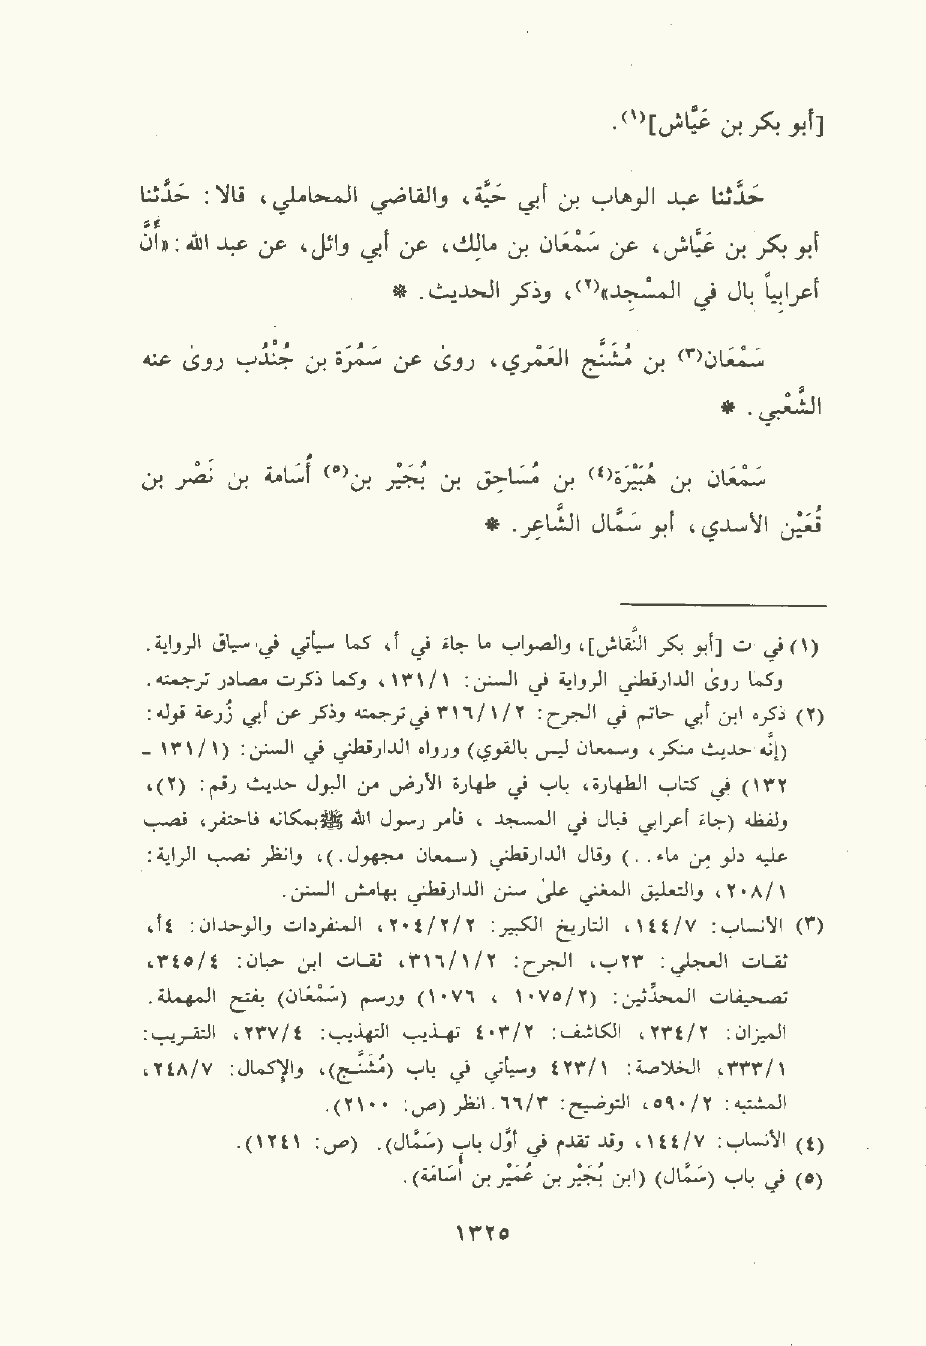 [أبو بكر بن عَيَّاش](١).
حَدَّثنا عبد الوهاب بن أبي حَيَّة، والقاضي المحاملي، قالا: حَدَّثنا
أبو بكر بن عَيَّاش، عن سَمْعَان بن مالِك، عن أبي وائل، عن عبد الله: «أنَّ
أعرابِياً بال في المسْجِد»(٢)، وذكر الحديث. *
سَمْعَان(٣) بن مُشَنَّج العَمْري، روى عن سَمُرَة بن جُنْدُب روى عنه
الشَّعْبي. *
سَمْعَان بن هُبَيْرَة(٤) بن مُسَاحِق بن بُجَيْر بن(٥) أُسَامة بن نَصْر بن
قُعَيْن الأسدي، أبو سَمَّال الشَّاعِر. *
(١) في ت [أبو بكر النَّقاش]، والصواب ما جاء في أ، كما سيأتي في سياق الرواية.
وكما روى الدارقطني الرواية في السنن: ١/ ١٣١، وكما ذكرت مصادر ترجمته.
(٢) ذكره ابن أبي حاتم في الجرح: ٢/ ١/ ٣١٦ في ترجمته وذكر عن أبي زُرعة قوله:
(إنَّه حديث منكر، وسمعان ليس بالقوي) ورواه الدارقطني في السنن: (١/ ١٣١ -
١٣٢) في كتاب الطهارة، باب في طهارة الأرض من البول حديث رقم: (٢)،
ولفظه (جاء أعرابي فبال في المسجد ، فأمر رسول الله ﷺ بمكانه فاحتفر، فصب
عليه دلو من ماء. . ) وقال الدارقطني (سمعان مجهول.)، وانظر نصب الراية:
١/ ٢٠٨، والتعليق المغني على سنن الدارقطني بهامش السنن.
(٣) الأنساب: ٧/ ١٤٤، التاريخ الكبير: ٢/ ٢/ ٢٠٤، المنفردات والوحدان: ٤أ،
ثقات العجلي: ٢٣ب، الجرح: ٢/ ١/ ٣١٦، ثقات ابن حبان: ٤/ ٣٤٥،
تصحيفات المحدِّثين: (٢/ ١٠٧٥ ، ١٠٧٦) ورسم (سَمْعَان) بفتح المهملة.
الميزان: ٢/ ٢٣٤، الكاشف: ٢/ ٤٠٣ تهذيب التهذيب: ٤/ ٢٣٧، التقريب:
١/ ٣٣٣، الخلاصة: ١/ ٤٢٣ وسيأتي في باب (مُشَنَّج)، والإكمال: ٧/ ٢٤٨،
المشتبه: ٢/ ٥٩٠، التوضيح: ٣/ ٦٦. انظر (ص: ٢١٠٠).
(٤) الأنساب: ٧/ ١٤٤، وقد تقدم في أوَّل باب (سَمَّال). (ص: ١٢٤١).
(٥) في باب (سَمَّال) (ابن بُجَيْر بن عُمَيْر بن أسَامَة).
١٣٢٥